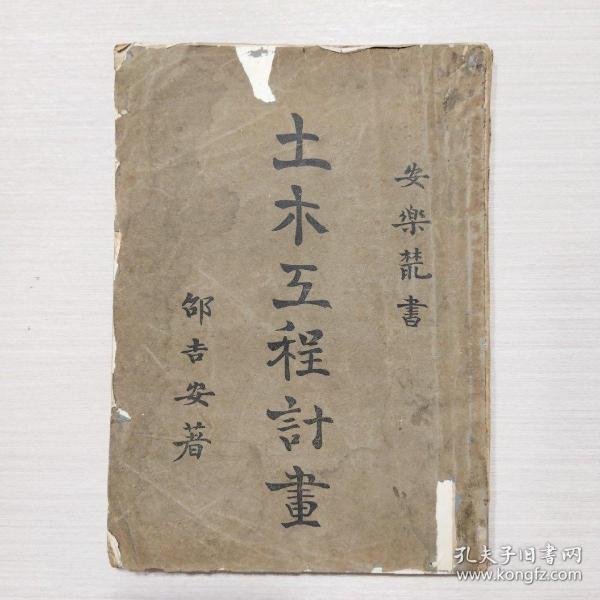 安樂叢書
土木工程計畫
邵吉安著
孔夫子旧书网
www.kongfz.com